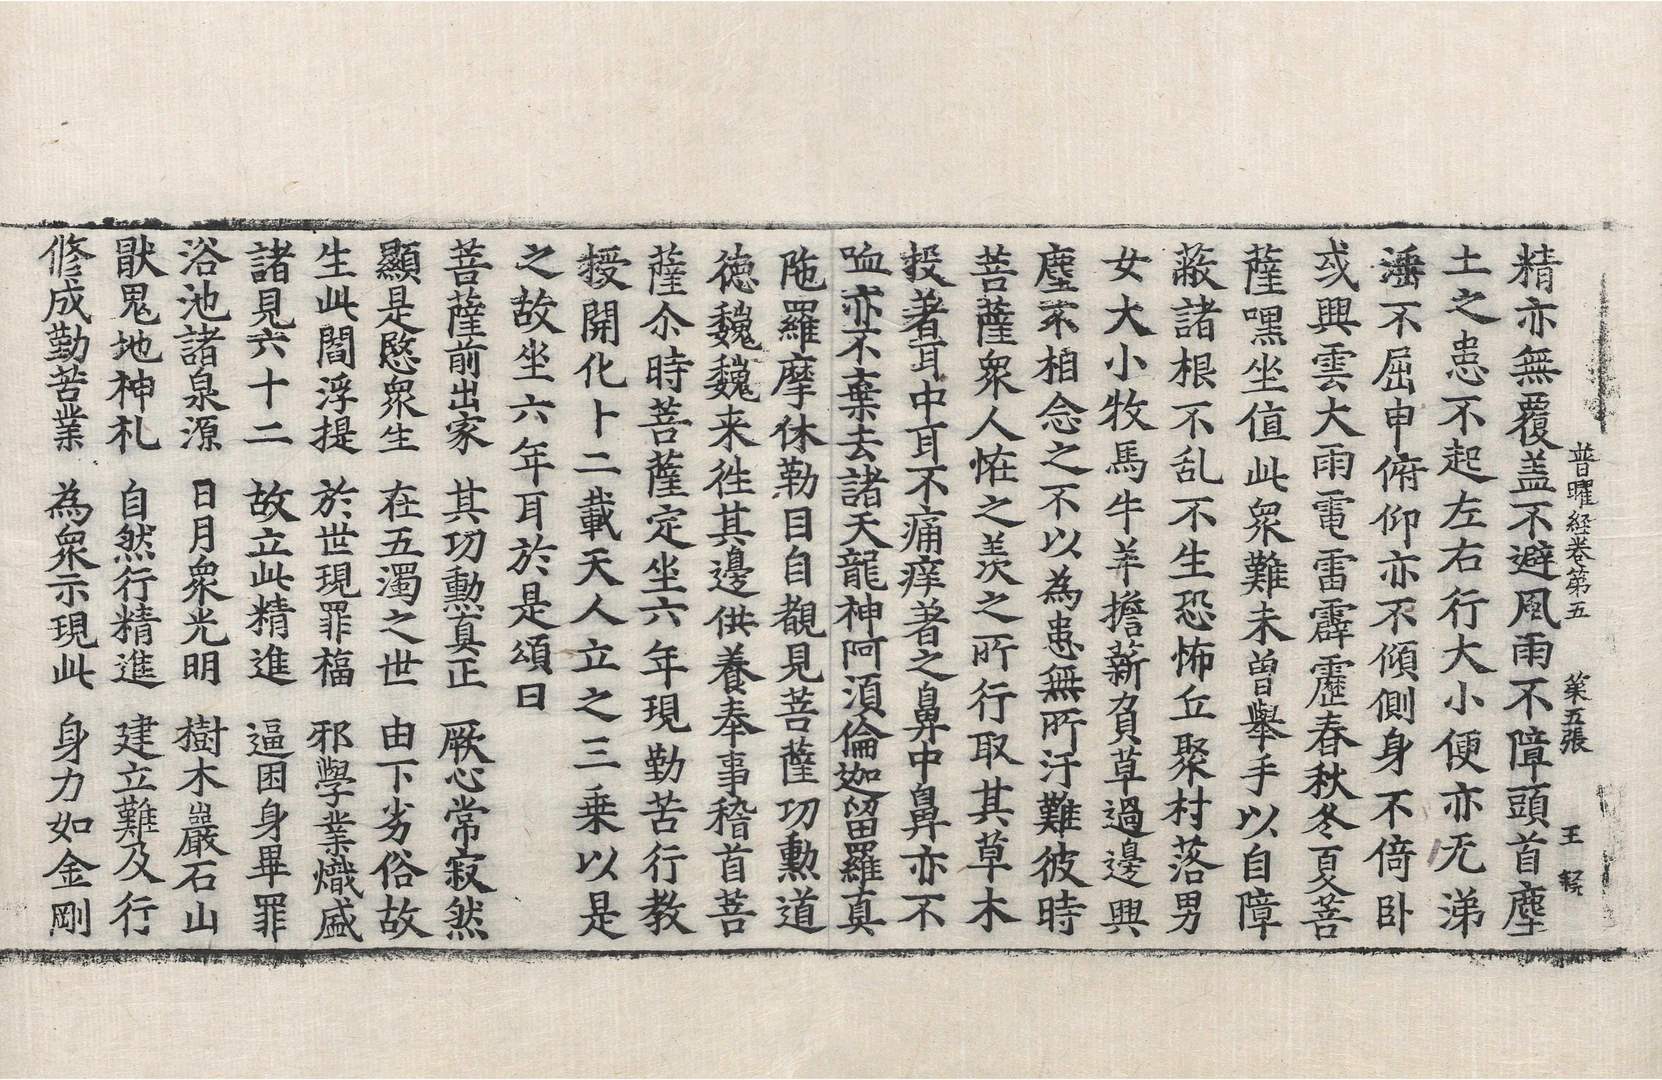 普曜経巻第五 苐五張 王
精亦無覆盖不避風雨不障頭首塵
土之患不起左右行大小便亦无涕
洟不屈申俯仰亦不傾側身不倚卧
或興雲大雨電雷霹靂春秋冬夏菩
薩嘿坐值此衆難未曾舉手以自障
蔽諸根不乱不生恐怖丘聚村落男
女大小牧馬牛羊擔薪負草過邊興
塵不相念之不以為患無所汙難彼時
菩薩衆人恠之羡之所行取其草木
投著耳中耳不痛痒著之鼻中鼻亦不
㖶亦不棄去諸天龍神阿湏倫迦留羅真
陁羅摩休勒目自覩見菩薩功勲道
德魏魏来徃其邊供養奉事稽首菩
薩尒時菩薩定坐六年現勤苦行教
授開化卜二載天人立之三乗以是
之故坐六年耳於是頌曰
菩薩前出家 其功勲真正 厥心常寂然
顯是愍衆生 在五濁之世 由下劣俗故
生此閻浮提 於世現罪福 邪學業熾盛
諸見六十二 故立此精進 逼困身畢罪
浴池諸泉源 日月衆光明 樹木巖石山
猒鬼地神礼 自然行精進 建立難及行
修成勤苦業 為衆示現此 身力如金剛